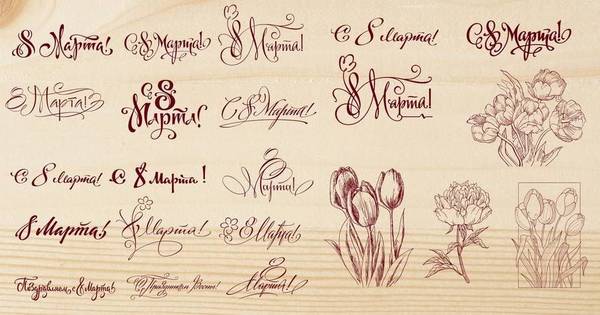 8 Марта!
С 8 Марта!
8 Марта!
С 8 марта!
С 8 Марта!
8 Марта!
С 8
Марта!
С 8 Марта!
8 Марта!
С 8 марта!
С 8 Марта !
8 Марта!
8 Марта!
8 Марта!
8 Марта!
Поздравляем с 8 марта!
С Праздником Весны!
8 Марта!